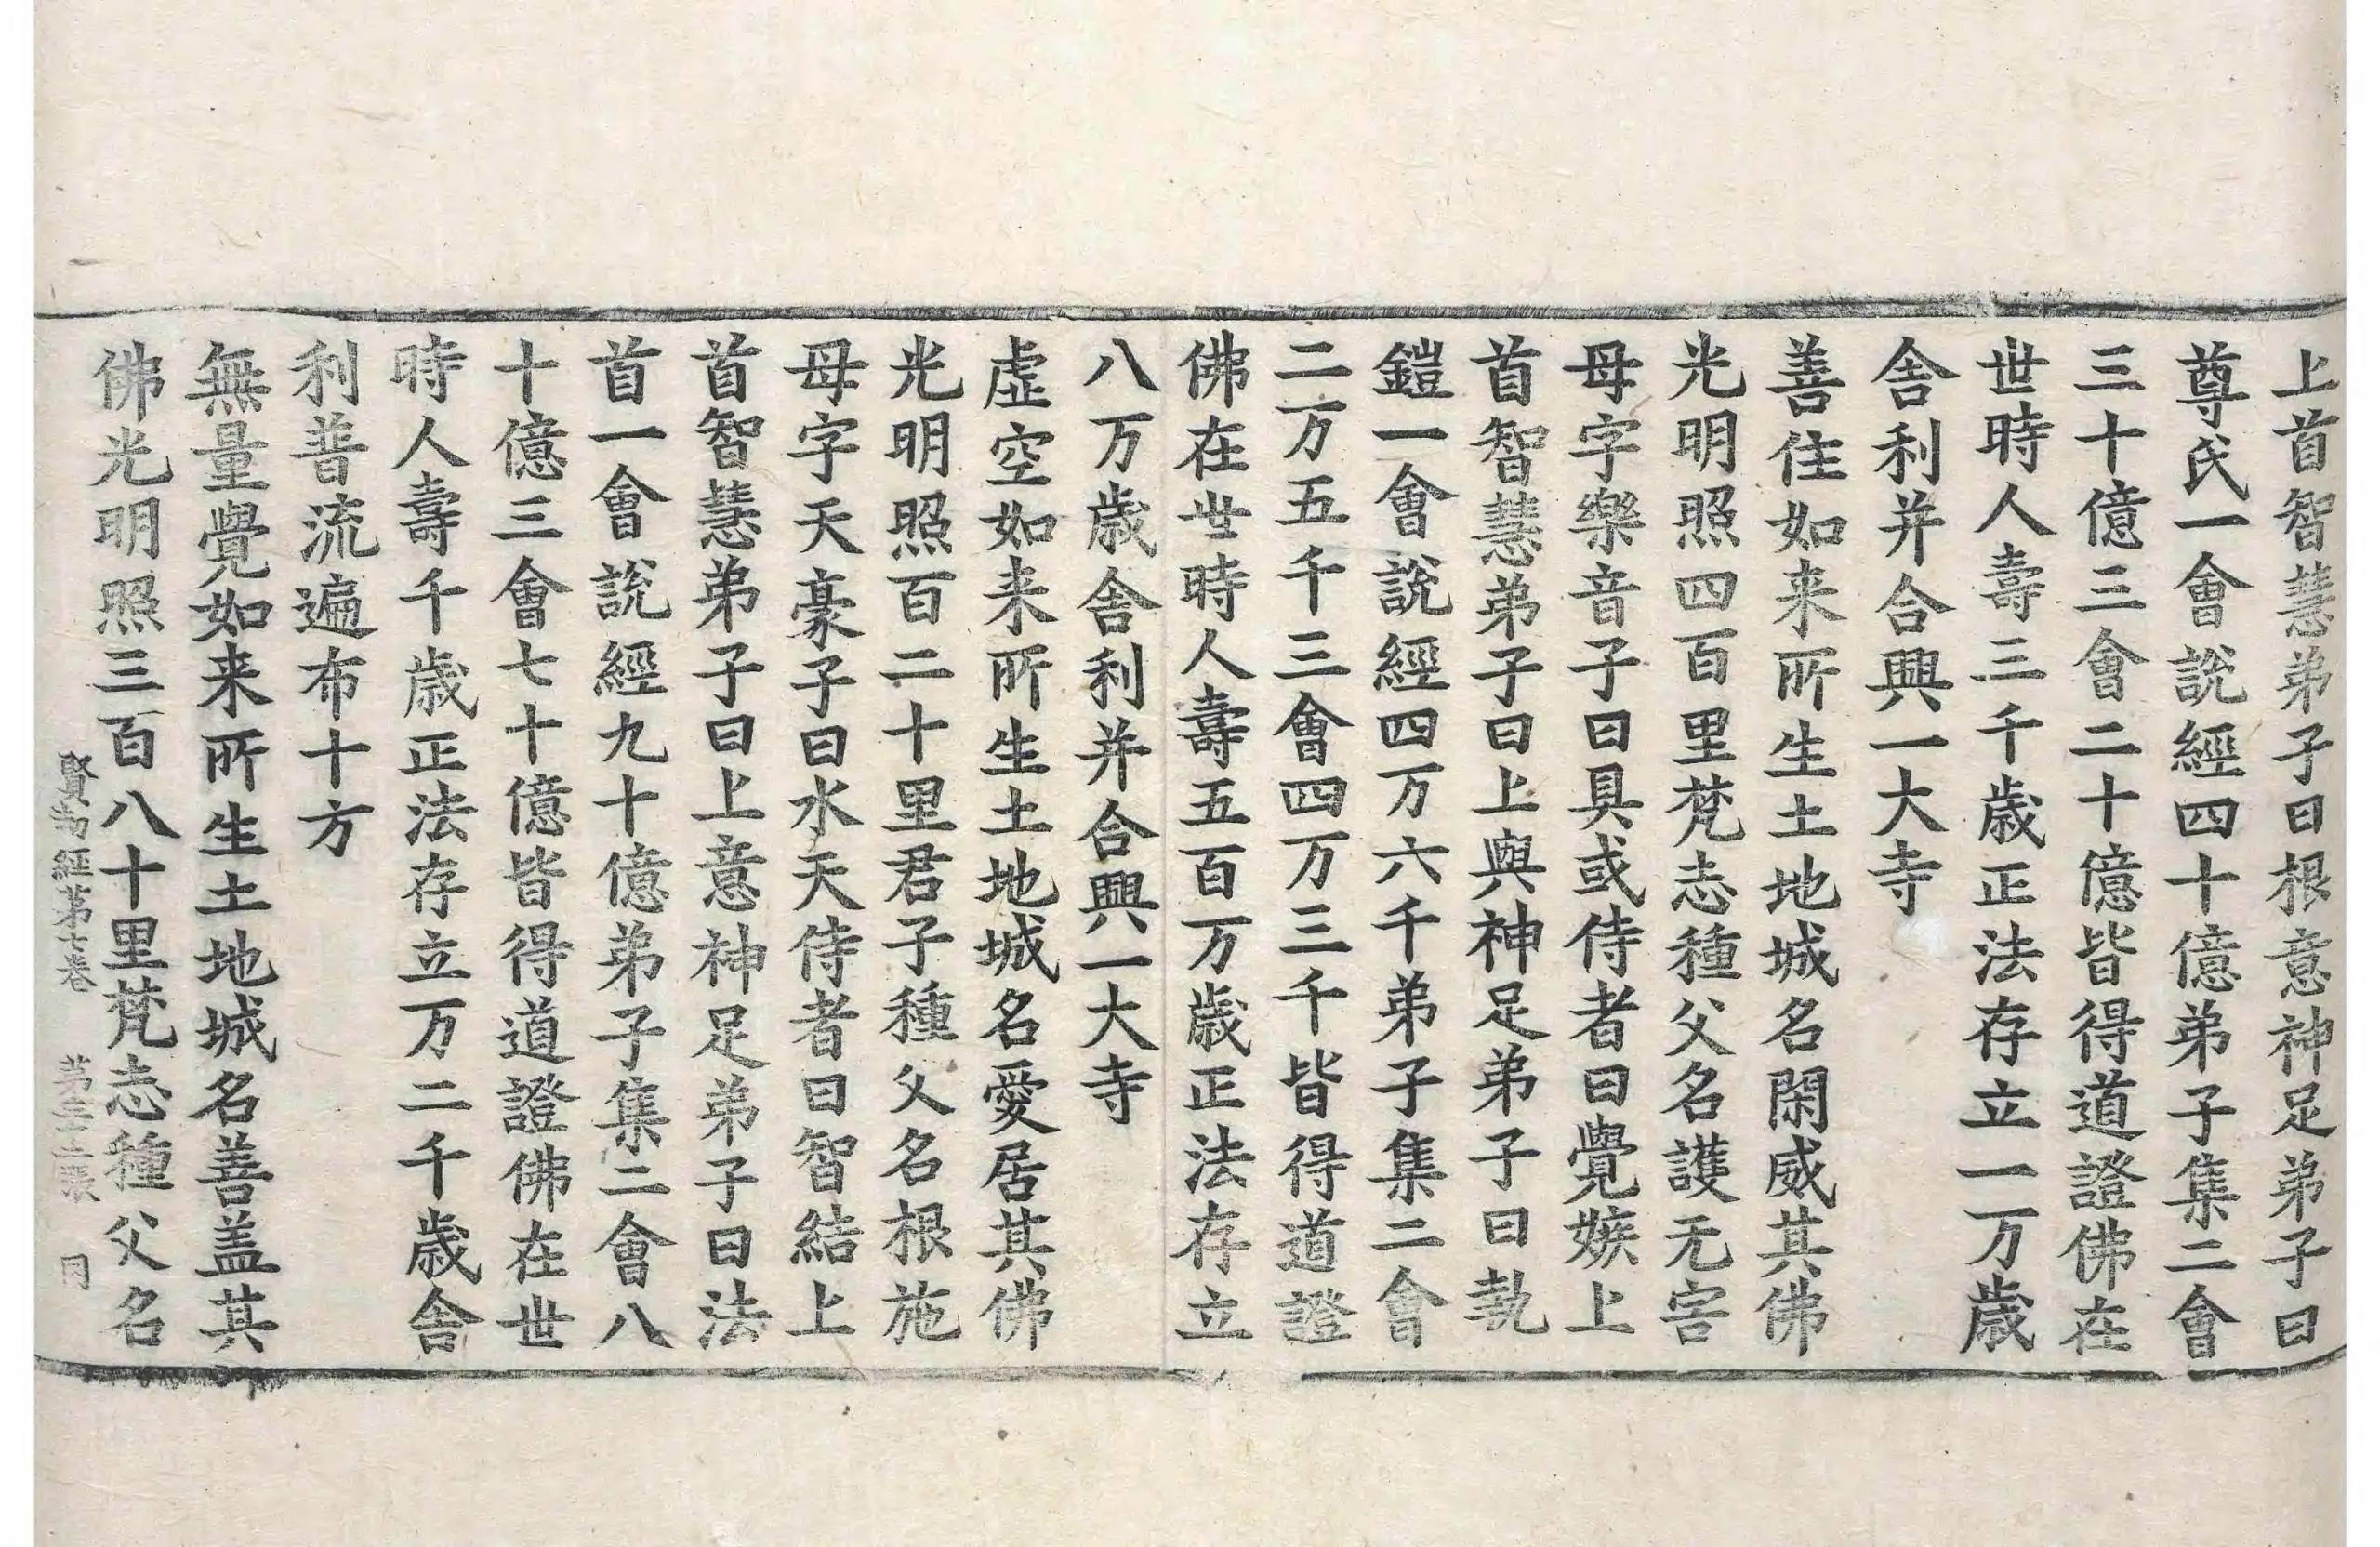 上首智慧弟子曰根意神足弟子曰
尊氏一會說經四十億弟子集二會
三十億三會二十億皆得道證佛在
世時人壽三千歲正法存立一万歲
舍利并合興一大寺
善住如来所生土地城名閑威其佛
光明照四百里梵志種父名護无害
母字樂音子曰具或侍者曰覺嫉上
首智慧弟子曰上與神足弟子曰執
鎧一會說經四万六千弟子集二會
二万五千三會四万三千皆得道證
佛在世時人壽五百万歲正法存立
八万歲舍利并合興一大寺
虛空如来所生土地城名愛居其佛
光明照百二十里君子種父名根施
母字天豪子曰水天侍者曰智結上
首智慧弟子曰上意神足弟子曰法
首一會說經九十億弟子集二會八
十億三會七十億皆得道證佛在世
時人壽千歲正法存立万二千歲舍
利普流遍布十方
無量覺如来所生土地城名善盖其
佛光明照三百八十里梵志種父名
賢劫經第七卷 第 張 同